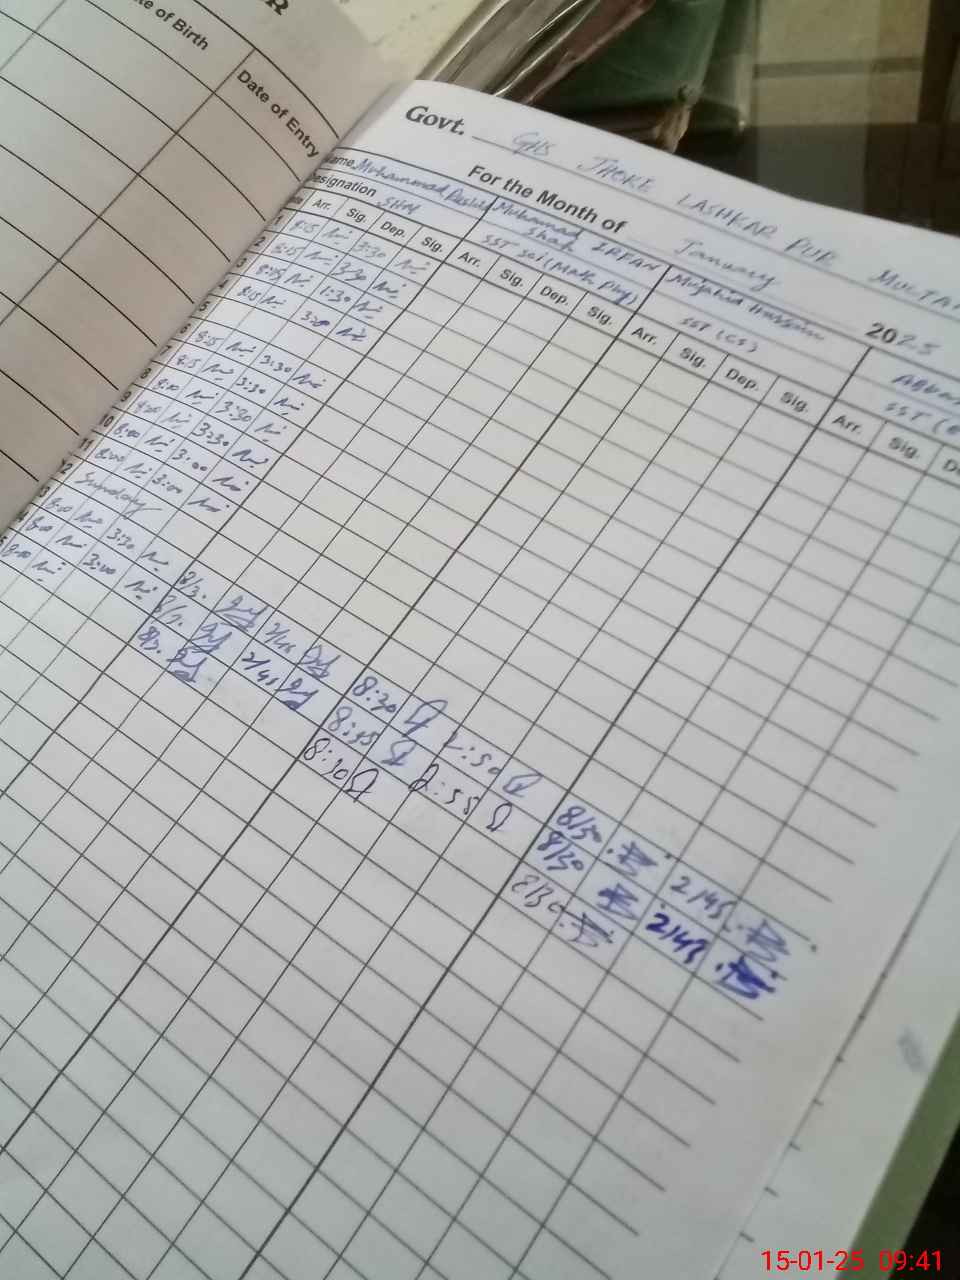 R
te of Birth
Date of Entry
Govt. GHS JHOKE LASHKAR PUR MULTAN
For the Month of January 2025
Name Muhammad Muhammad IRFAN Shah Mujahid Hussain
Designation SHM SST Sci (Math Phy) SST (CS) SST
Arr. Sig. Dep. Sig. Arr. Sig. Dep. Sig. Arr. Sig. Dep. Sig. Arr. Sig.
1 8:15 3:30
2 8:15 3:30
3 8:15 1:30
4 8:15 3:20
5
6 8:15 3:30
7 8:15 3:30
8 8:00 3:30
9 8:00 3:30
10 8:00 3:00
11 8:00 3:00
12 Sunday
13 8:00 3:30 8/3. 2/45 8:30 2:50 8/30 2/45
14 8:00 3:00 8/3. 2/45 8:45 2:55 8/30 2/45
15 8:00 8/3. 8:30 8/30
15-01-25 09:41